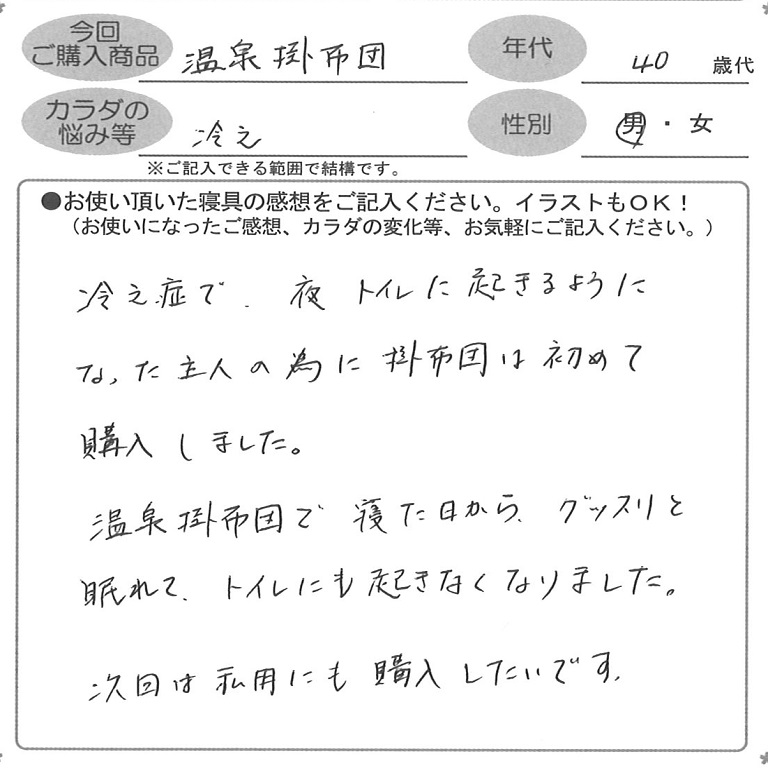 今回
ご購入商品
温泉掛布団
年代
40 歳代
カラダの
悩み等
冷え
性別
男・女
※ご記入できる範囲で結構です。
●お使い頂いた寝具の感想をご記入ください。イラストもOK!
(お使いになったご感想、カラダの変化等、お気軽にご記入ください。)
冷え症で、夜トイレに起きるように
なった主人の為に掛布団は初めて
購入しました。
温泉掛布団で寝た日から、グッスリと
眠れて、トイレにも起きなくなりました。
次回は私用にも購入したいです。